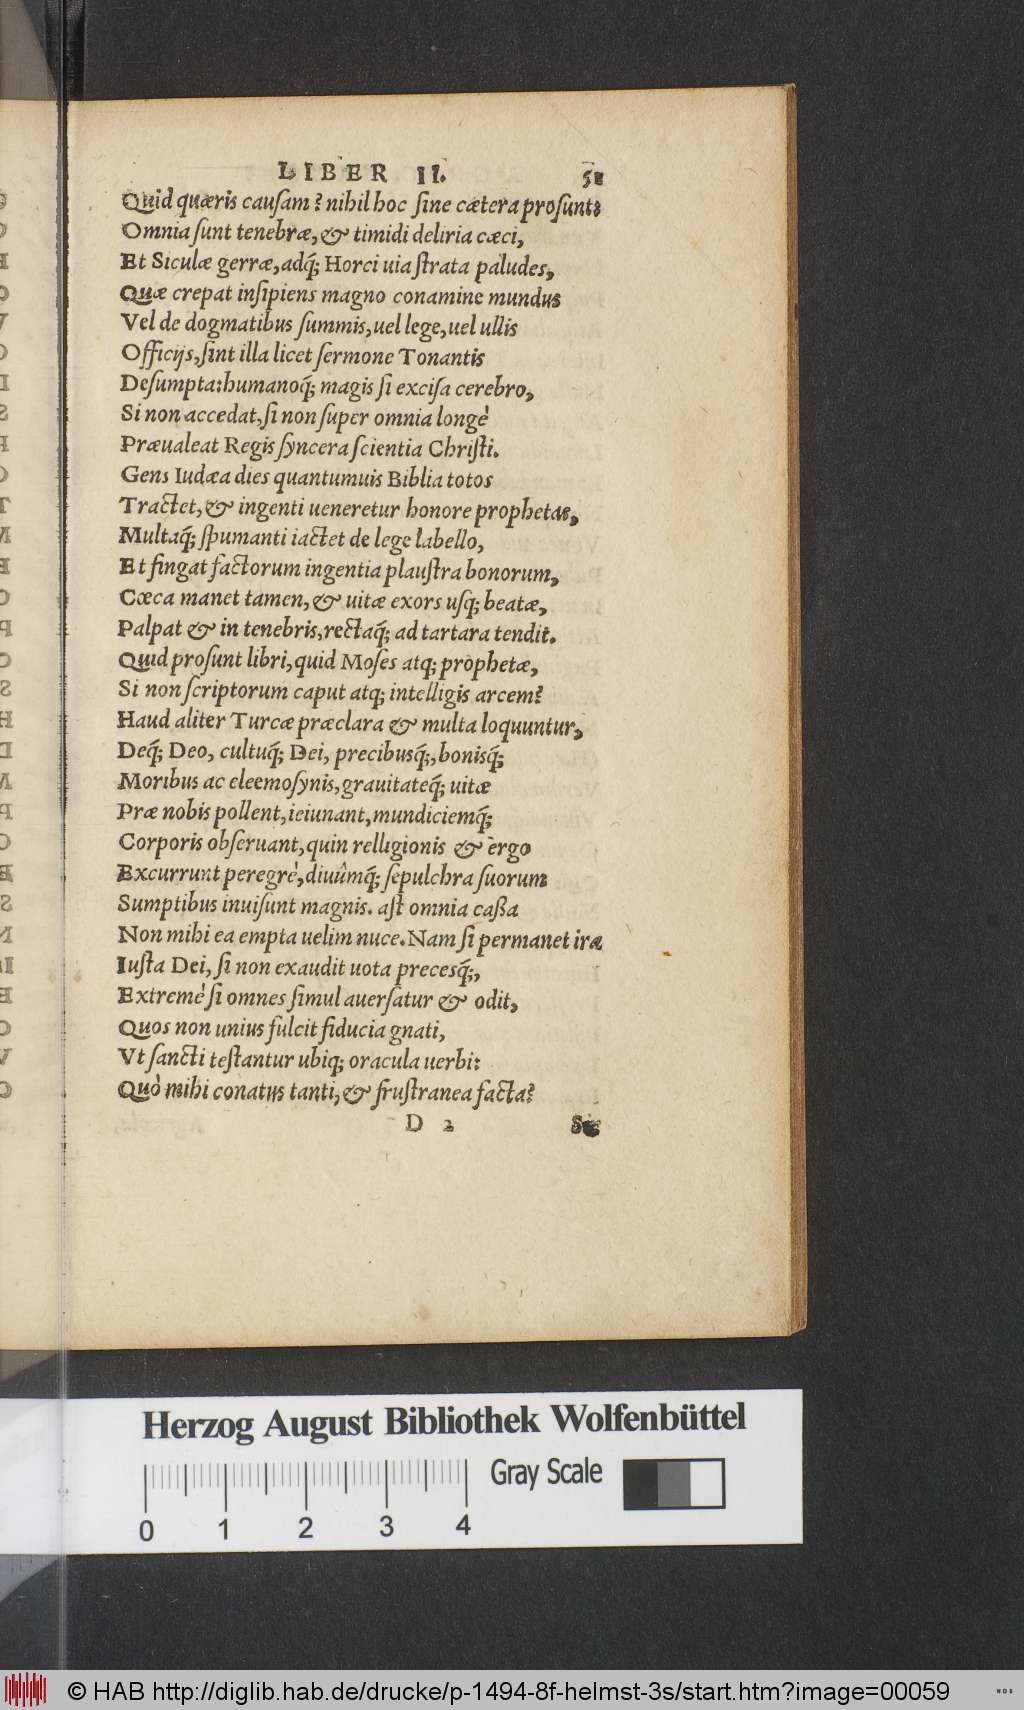 LIBER II. 51
Quid quæris causam? nihil hoc sine cætera prosunt:
Omnia sunt tenebræ, & timidi deliria cæci,
Et Siculæ gerræ, adq́; Horci uia strata paludes,
Quæ crepat insipiens magno conamine mundus
Vel de dogmatibus summis, uel lege, uel ullis
Officijs, sint illa licet sermone Tonantis
Desumpta: humanoq́; magis si excisa cerebro,
Si non accedat, si non super omnia longè
Præualeat Regis syncera scientia Christi.
Gens Iudæa dies quantumuis Biblia totos
Tractet, & ingenti ueneretur honore prophetas,
Multaq́; spumanti iactet de lege labello,
Et fingat factorum ingentia plaustra bonorum,
Cæca manet tamen, & uitæ exors usq; beatæ,
Palpat & in tenebris, rectaq́; ad tartara tendit.
Quid prosunt libri, quid Moses atq; prophetæ,
Si non scriptorum caput atq; intelligis arcem?
Haud aliter Turcæ præclara & multa loquuntur,
Deq́; Deo, cultuq́; Dei, precibusq́;, bonisq́;
Moribus ac eleemosynis, grauitateq́; uitæ
Præ nobis pollent, ieiunant, mundiciemq́;
Corporis obseruant, quin relligionis & ergo
Excurrunt peregrè, diuûmq́; sepulchra suorum
Sumptibus inuisunt magnis. ast omnia caßa
Non mihi ea empta uelim nuce. Nam si permanet iræ
Iusta Dei, si non exaudit uota precesq́;,
Extremè si omnes simul auersatur & odit,
Quos non unius fulcit fiducia gnati,
Vt sancti testantur ubiq; oracula uerbi:
Quò mihi conatus tanti, & frustranea facta?
D 2
Herzog August Bibliothek Wolfenbüttel
Gray Scale
0 1 2 3 4
© HAB http://diglib.hab.de/drucke/p-1494-8f-helmst-3s/start.htm?image=00059